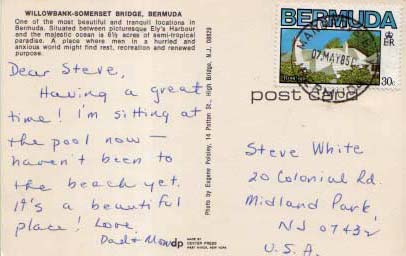 WILLOWBANK-SOMERSET BRIDGE, BERMUDA
One of the most beautiful and tranquil locations in
Bermuda. Situated between picturesque Ely's Harbour
and the majestic ocean is 6½ acres of semi-tropical
paradise. A place where men in a hurried and
anxious world might find rest, recreation and renewed
purpose.
Dear Steve,
Having a great
time! I'm sitting at
the pool now —
haven't been to
the beach yet.
It's a beautiful
place! Love,
Dad + Mom
Photo by Eugene Polsley, 14 Patton St., High Bridge, N.J. 08829
dp
MADE BY
DEXTER PRESS
WEST NYACK, NEW YORK
BERMUDA
30c
07.MAY85
post card
Steve White
20 Colonial Rd.
Midland Park,
NJ 07432
U.S.A.